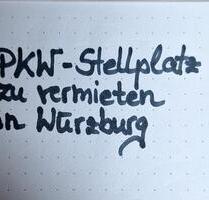 PKW-Stellplatz
zu vermieten
in Würzburg